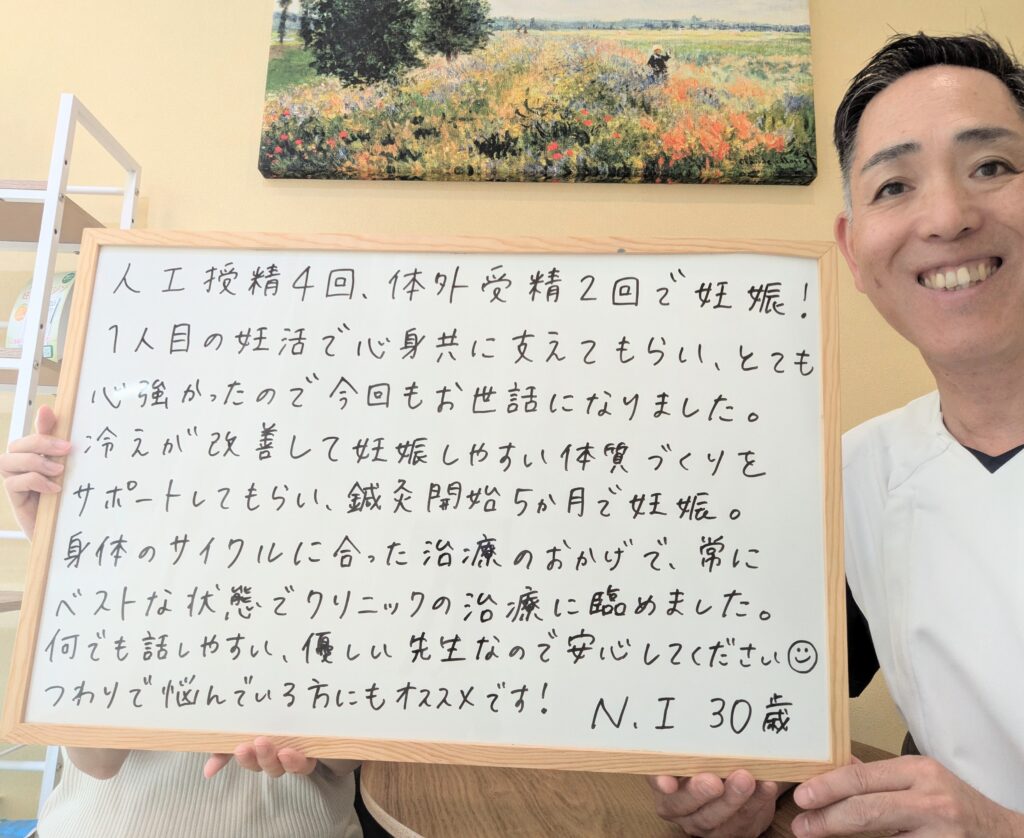 人工授精4回、体外受精2回で妊娠!
1人目の妊活で心身共に支えてもらい、とても
心強かったので今回もお世話になりました。
冷えが改善して妊娠しやすい体質づくりを
サポートしてもらい、鍼灸開始5か月で妊娠。
身体のサイクルに合った治療のおかげで、常に
ベストな状態でクリニックの治療に臨めました。
何でも話しやすい、優しい先生なので安心してください☺
つわりで悩んでいる方にもオススメです!
N.I 30歳